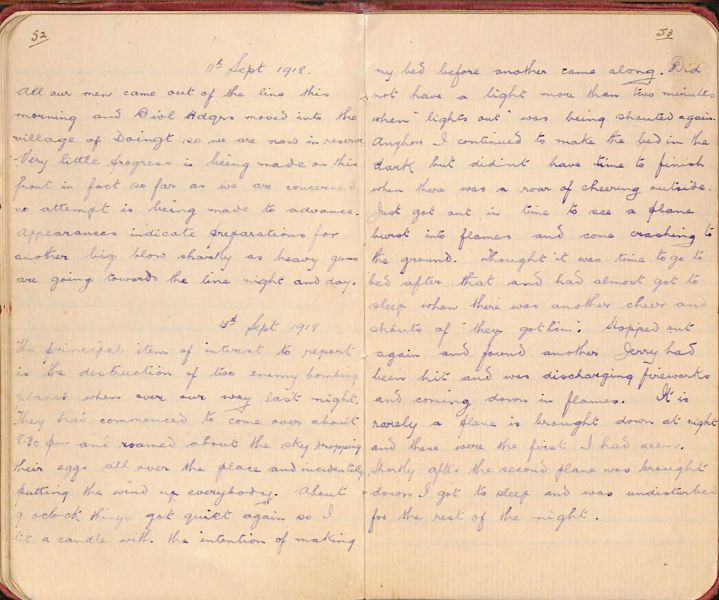 52
11th Sept 1918.
All our men came out of the line this
morning and Divl Hdqrs moved into the
village of Doingt so we are now in reserve
Very little progress is being made on this
front in fact so far as we are concerned
no attempt is being made to advance.
Appearances indicate preparations for
another big blow shortly as heavy guns
are going towards the line night and day.
Sept 1918.
The principal item of interest to report
is the destruction of two enemy bombing
planes when over our way last night.
They had commenced to come over about
8.30 pm and roamed about the sky dropping
their eggs all over the place and incidentally
putting the wind up everybody. About
9 oclock things got quiet again so I
lit a candle with the intention of making
53
my bed before another came along. Did
not have a light more than two minutes
when "lights out" was being shouted again.
Anyhow I continued to make the bed in the
dark but didint have time to finish
when there was a roar of cheering outside.
Just got out in time to see a plane
burst into flames and come crashing to
the ground. Thought it was time to go to
bed after that and had almost got to
sleep when there was another cheer and
shouts of "they got him". Hopped out
again and found another Jerry had
been hit and was discharging fireworks
and coming down in flames. It is
rarely a plane is brought down at night
and these were the first I had seen.
Shortly aftr. the second plane was brought
down I got to sleep and was undisturbed
for the rest of the night.